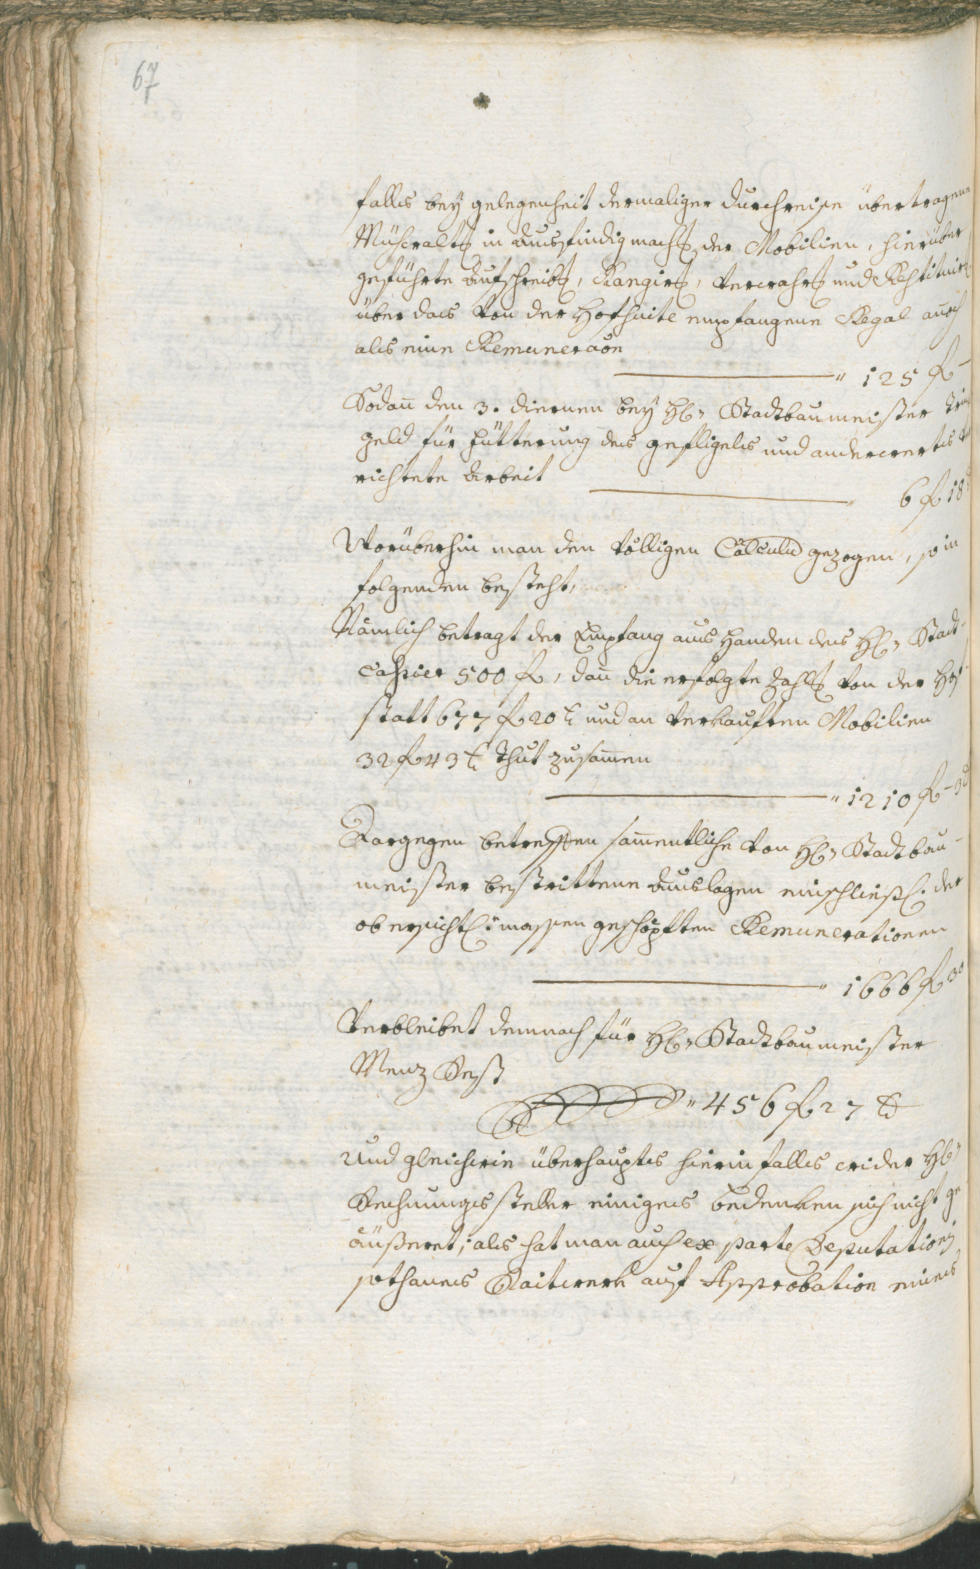 67
falls bey gelegenheit dermaliger durchreise übertragene
Mühewalt[ung] in Ausfindigmach[ung] der Mobilien, hierüber
geführte Aufschreib[ung], Rangir[ung], verwahr[ung] und Restituir[ung]
über das von der Hofsuite empfangene Regal auch
als eine Remuneraon
" 125 fl –
Sodan̄ den 3. diernen bey H: Stadtbaumeister Trink
geld für fütterung des gefligels und anderwertes
richtete Arbeit
" 6 fl 18
Worüberhin man den völligen Calculu gezogen, so in
folgenden besteht,
Nämlich betragt der Empfang aus Handen des H: Stadt-
Cassier 500 fl, dan̄ die erfolgte Zahl[ung] von der Hof
statt 677 fl 20 x und an verkauften Mobilien
32 fl 43 x thut zusam̄en
" 1210 fl – 3
Dargegen betreffen sam̄entliche von H: Stadtbau-
meister bestrittene Auslagen einschließl: der
obersichtl: massen geschöpften Remunerationen
" 1666 fl 30
Verbleibet demnach für H: Stadtbaumeister
Menz Rest
" 456 fl 27 x
Und gleichwie überhaupts hierinfalls wider H:
Rechnungssteller einiges bedenken sich nicht ge
äußeret; als hat man auch ex parte Deputationis
sothannes Raitwerk auf Approbation eines